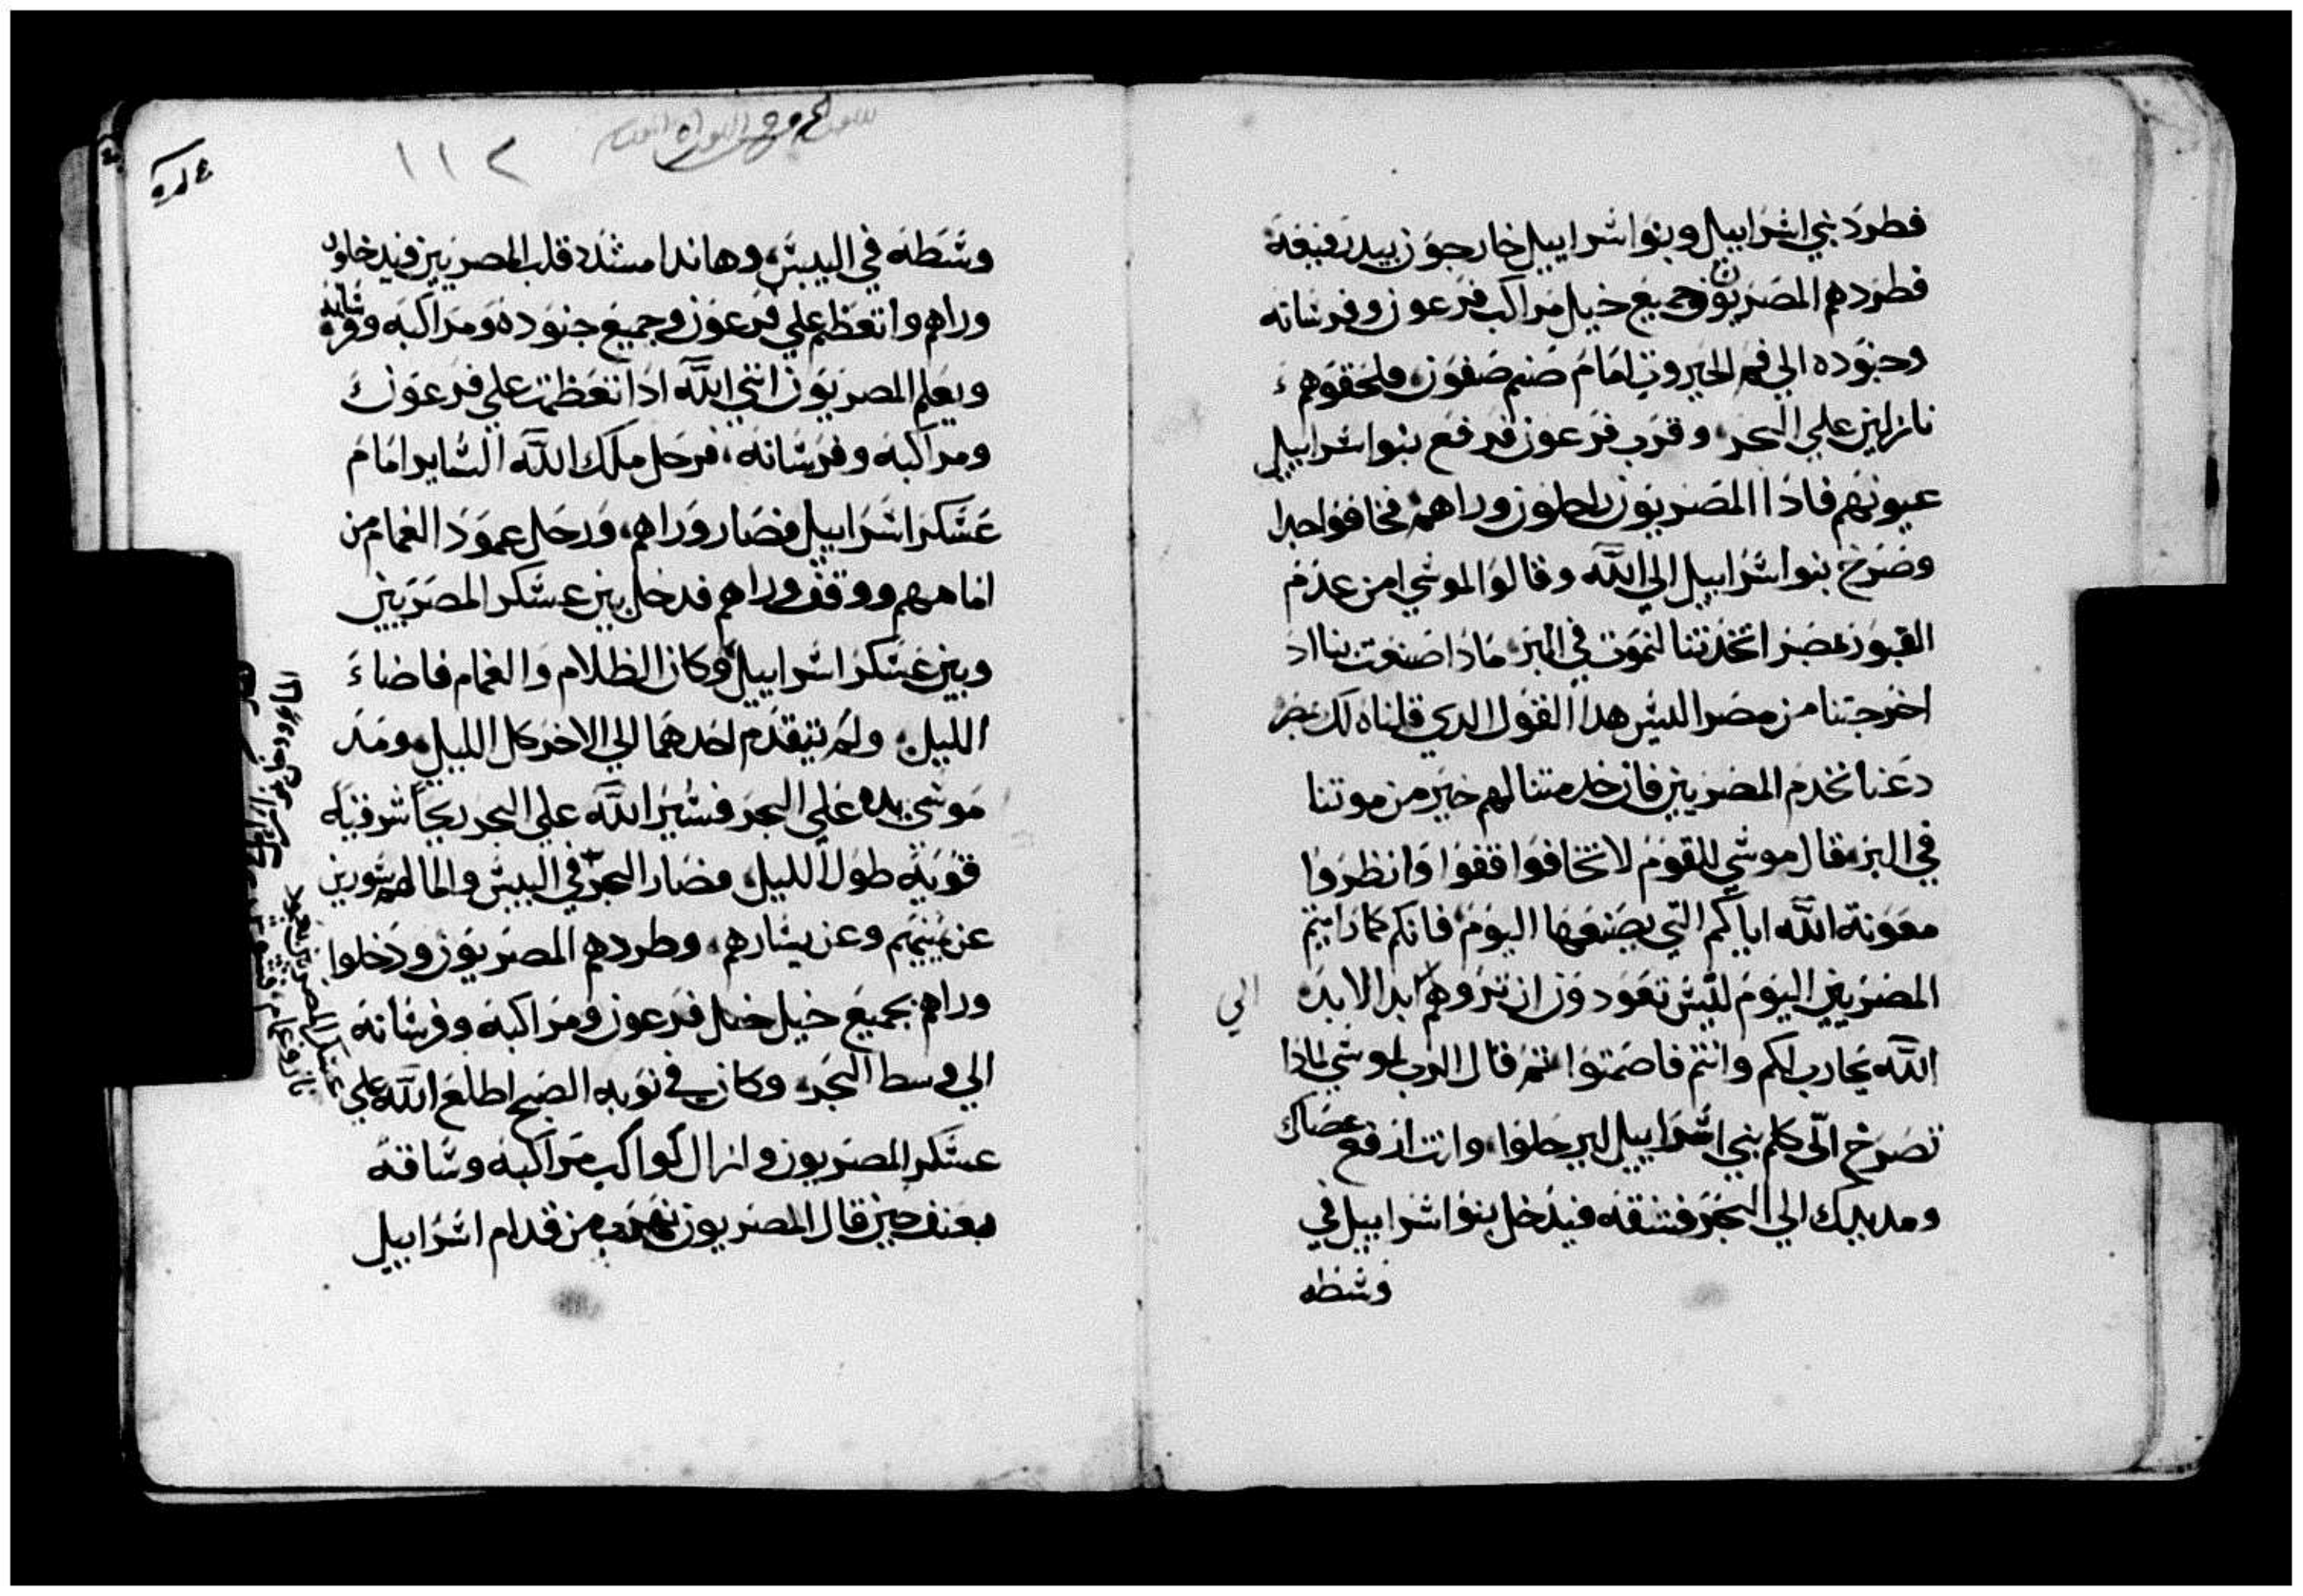 فطرد بني اسراييل وبنوا اسراييل خارجون بيد رفيعة
فطردهم المصريون وجميع خيل مراكب فرعون وفرسانه
وجنوده الي فم الحيروث امام صنم صفون، فلحقوهم
نازلين علي البحر، وقرب فرعون فرفع بنوا اسراييل
عيونهم فاذا المصريون راحلون وراهم، فخافوا جدا
وصرخ بنوا اسراييل الي الله وقالوا لموسي امن عدم
القبور بمصر اتخذتنا لنموت في البر، ماذا صنعت بنا اذ
اخرجتنا من مصر اليس هدا القول الدي قلناه لك بمصر
دعنا نخدم المصريين فان خدمتنا لهم خير من موتنا
في البر، فقال موسي للقوم لا تخافوا قفوا وانظروا
معونة الله اياكم التي يصنعها اليوم، فانكم كما رايتم
المصريين اليوم ليس تعودون ان تروهم ابدا الابد،
الي
الله يحارب لكم وانتم فاصمتوا، ثم قال الرب لموسي لماذا
تصرخ الي كلم بني اسراييل ليرحلوا، وانت ارفع عصاك
ومد يدك الي البحر فشقه فيدخل بنوا اسراييل في
وسطه
١١٢
وسطه في اليبس، وهاندا مشدد قلب المصريين فيدخلون
وراهم واتعظم علي فرعون وجميع جنوده ومراكبه وفرسانه
ويعلم المصريون انني الله اذا تعظمت علي فرعون
ومراكبه وفرسانه، فرحل ملك الله الساير امام
عسكر اسراييل فصار وراهم، ورحل عمود الغمام من
امامهم ووقف وراهم فدخل بين عسكر المصريين
وبين عسكر اسراييل وكان الظلام والغمام فاضاء
الليل، ولم يتقدم احدهما الي الاخر كل الليل، ومد
موسي يده علي البحر فسير الله علي البحر ريحا شرقية
قوية طول الليل، فصار البحر في اليبس والما لهم سورين
عن يمينهم وعن يسارهم، وطردهم المصريون ودخلوا
وراهم بجميع خيل فرعون ومراكبه وفرسانه
الي وسط البحر، وكان في نوبه الصبح اطلع الله علي
عسكر المصريون وازال كواكب مراكبه وساقه
بعنف حين قال المصريون نهرب من قدام اسراييل